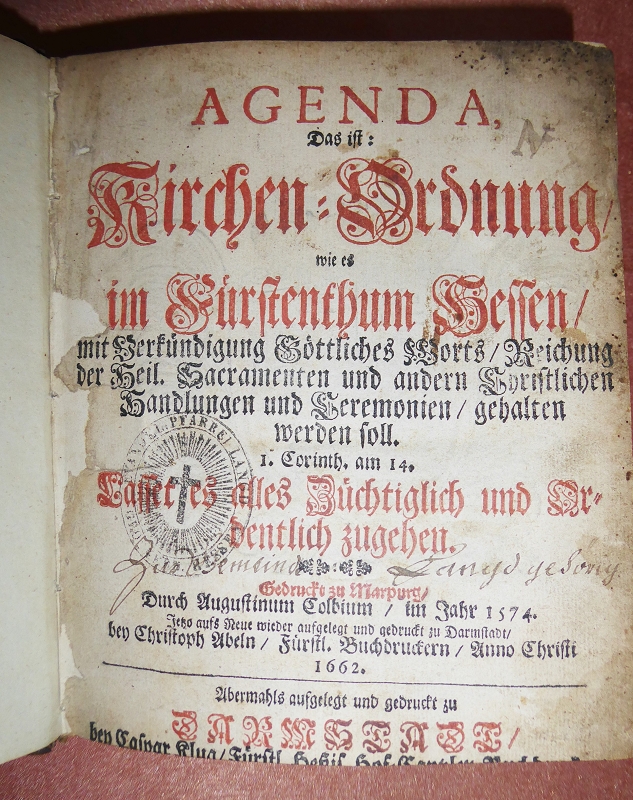 AGENDA,
Das ist:
Kirchen-Ordnung/
wie es
im Fürstenthum Hessen/
mit Verkündigung Göttliches Worts/ Reichung
der Heil. Sacramenten und andern Christlichen
Handlungen und Ceremonien/ gehalten
werden soll.
1. Corinth. am 14.
Lasset es alles Züchtiglich und Or-
dentlich zugehen.
Zur Gemeinde Langd gehörig
Gedruckt zu Marpurg/
Durch Augustinum Colbium/ im Jahr 1574.
Jetzo aufs Neue wieder aufgelegt und gedruckt zu Darmstadt/
bey Christoph Abeln/ Fürstl. Buchdruckern/ Anno Christi
1662.
Abermahls aufgelegt und gedruckt zu
DARMSTADT/
bey Caspar Klug/ Fürstl. Heßis. Hof-
PFARREI LANGD